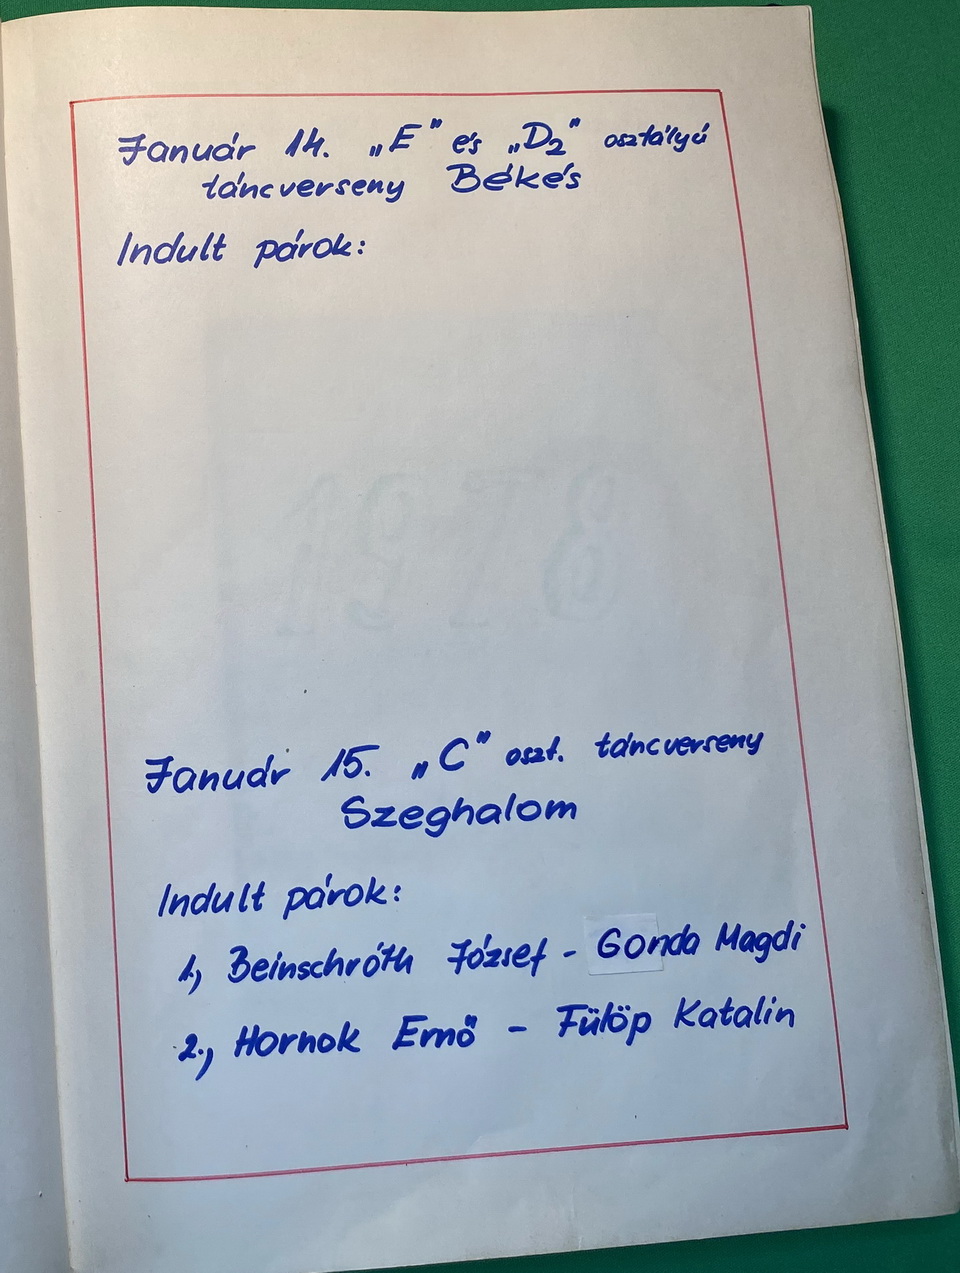 Január 14. „E" és „D₂" osztályú
táncverseny Békés
Indult párok:
1978
Január 15. „C" oszt. táncverseny
Szeghalom
Indult párok:
1, Beinschróth József - Gonda Magdi
2., Hornok Ernő - Fülöp Katalin